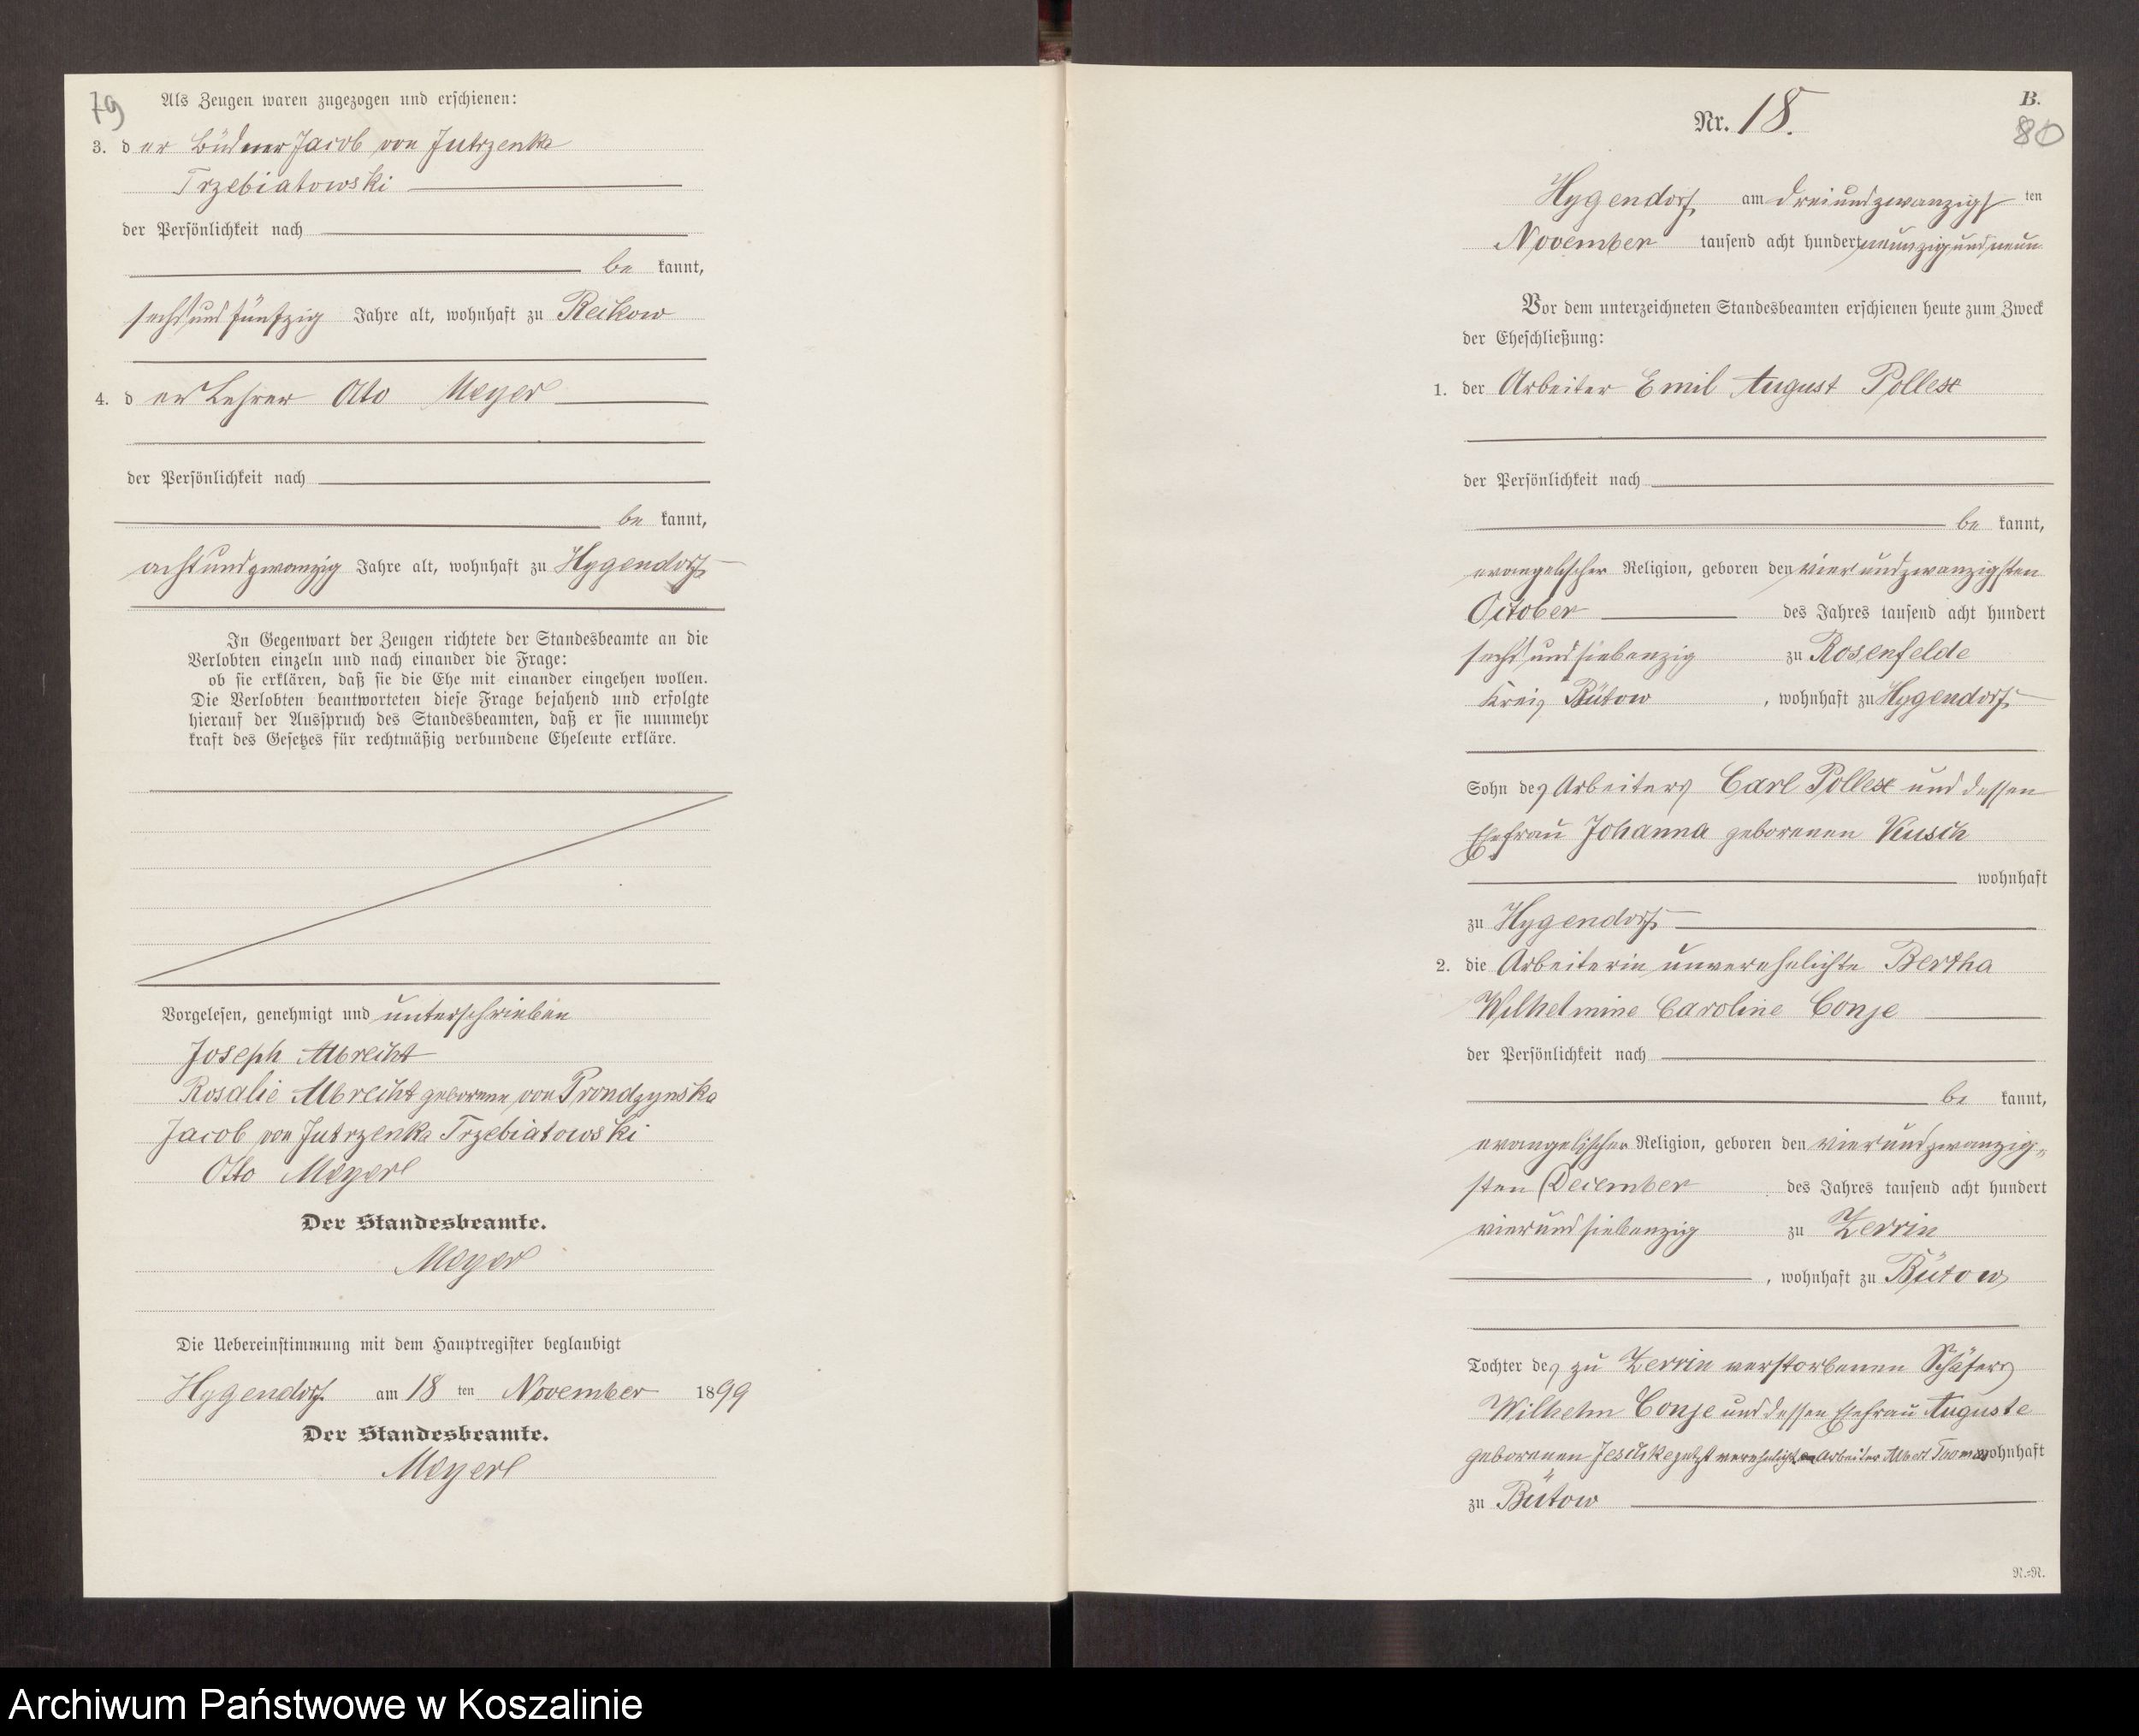 79
Als Zeugen waren zugezogen und erschienen:
3. der Büdner Jacob von Jutrzenka
Trzebiatowski
der Persönlichkeit nach
be kannt,
sechsundfünfzig Jahre alt, wohnhaft zu Reckow
4. der Lehrer Otto Meyer
der Persönlichkeit nach
be kannt,
achtundzwanzig Jahre alt, wohnhaft zu Hygendorf
In Gegenwart der Zeugen richtete der Standesbeamte an die
Verlobten einzeln und nach einander die Frage:
ob sie erklären, daß sie die Ehe mit einander eingehen wollen.
Die Verlobten beantworteten diese Frage bejahend und erfolgte
hierauf der Ausspruch des Standesbeamten, daß er sie nunmehr
kraft des Gesetzes für rechtmäßig verbundene Eheleute erkläre.
Vorgelesen, genehmigt und unterschrieben
Joseph Albrecht
Rosalie Albrecht geborene von Prondzynska
Jacob von Jutrzenka Trzebiatowski
Otto Meyer
Der Standesbeamte.
Meyer
Die Uebereinstimmung mit dem Hauptregister beglaubigt
Hygendorf am 18 ten November 1899
Der Standesbeamte.
Meyer
B.
Nr. 18.
80
Hygendorf, am dreiundzwanzigsten
November tausend acht hundert neunzig und neun
Vor dem unterzeichneten Standesbeamten erschienen heute zum Zweck
der Eheschließung:
1. der Arbeiter Emil August Pollex
der Persönlichkeit nach
be kannt,
evangelischer Religion, geboren den vierundzwanzigsten
October des Jahres tausend acht hundert
sechsundsiebenzig zu Rosenfelde
Kreis Bütow, wohnhaft zu Hygendorf
Sohn des Arbeiters Carl Pollex und dessen
Ehefrau Johanna geborenen Kusch
wohnhaft
zu Hygendorf
2. die Arbeiterin unverehelichte Bertha
Wilhelmine Caroline Conje
der Persönlichkeit nach
be kannt,
evangelischer Religion, geboren den vierundzwanzig-
sten December des Jahres tausend acht hundert
vierundsiebenzig zu Zerrin
, wohnhaft zu Bütow
Tochter des zu Zerrin verstorbenen Schäfers
Wilhelm Conje und dessen Ehefrau Auguste
geborenen Jeschke jetzt verehelichten Arbeiter Albert wohnhaft
zu Bütow
N.=N.
Archiwum Państwowe w Koszalinie